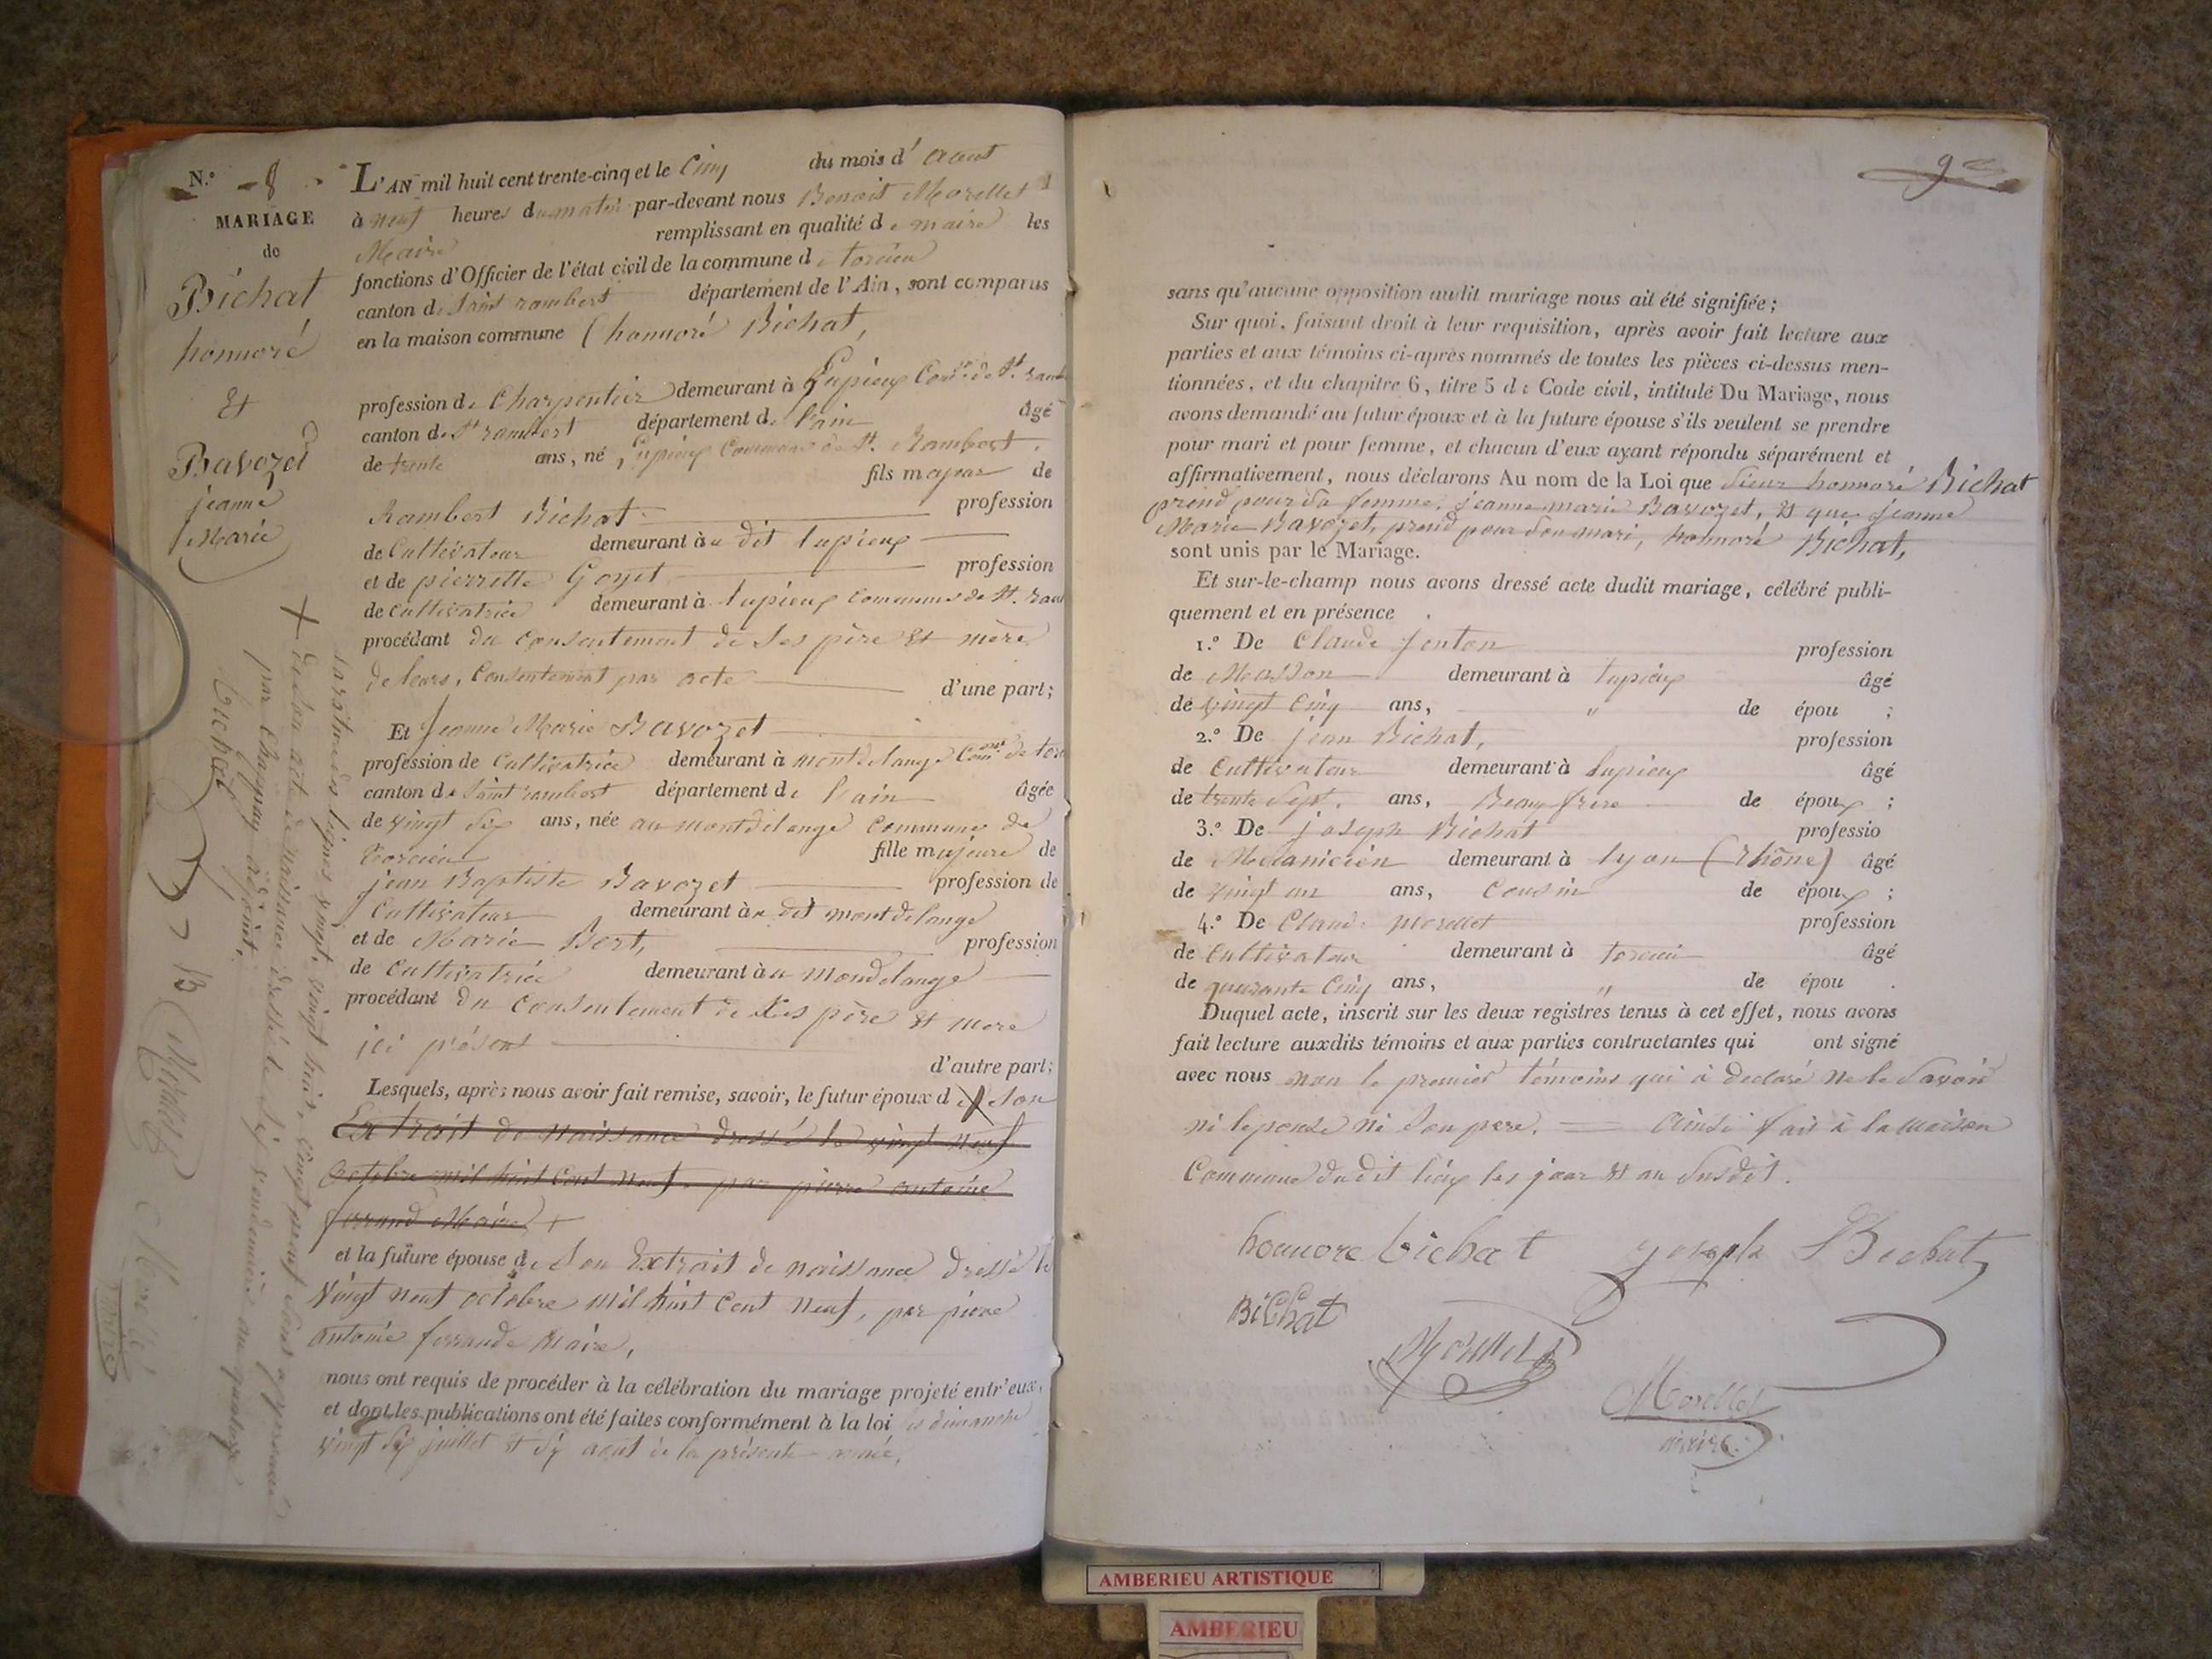 N.º 8
MARIAGE
de
Bichat
honnoré
Et
Bavozet
jeanne
Marie
L'AN mil huit cent trente-cinq et le Cinq du mois d' aout
à neuf heures du matin par-devant nous Benoit Morellet
Maire remplissant en qualité de maire les
fonctions d'Officier de l'état civil de la commune de torcieu
canton de Saint rambert département de l'Ain, sont comparus
en la maison commune (honnoré Bichat,
profession de Charpentier) demeurant à Lupieux Com.ne de St. ramb
canton de St rambert département de l'ain âgé
de trente ans, né Lupieux Commune de St. Rambert.
fils majeur de
Rambert Bichat profession
de Cultivateur demeurant à u dit lupieux
et de pierrette Goyet profession
de Cultivatrice demeurant à lupieux Commune de St. ram
procédant du Consentement de Ses père Et mère
de leurs, Consentement par acte d'une part;
Et Jeanne Marie Bavozet
profession de Cultivatrice demeurant à montdelange Com.ne de torc
canton de Saint rambert département de l'ain âgée
de vingt Six ans, née au montdelange Commune de
torcieu fille majeure de
jean Baptiste Bavozet profession de
Cultivateur demeurant à u dit montdelange
et de Marie Bort, profession
de Cultivatrice demeurant à u mondelange
procédant du Consentement de Ses père Et mere
ici présent
d'autre part;
Lesquels, après nous avoir fait remise, savoir, le futur époux de Son
Extrait de naissance dressé le vingt neuf
Octobre mil huit Cent neuf, par pierre antoine
ferrand Maire +
et la future épouse de Son Extrait de naissance dressé le
Vingt neuf octobre mil huit Cent neuf, par pierre
antoine ferrand Maire,
nous ont requis de procéder à la célébration du mariage projeté entr'eux,
et dont les publications ont été faites conformément à la loi les dimanche
vingt Six juillet Et Six aout de la présente année,
+ de Son acte de naissance dressé le Six vendemiaire an quatorze
par Chappuy adjoint.
Bichat
Morellet
Maire
9
sans qu'aucune opposition audit mariage nous ait été signifiée;
Sur quoi, faisant droit à leur requisition, après avoir fait lecture aux
parties et aux témoins ci-après nommés de toutes les pièces ci-dessus men-
tionnées, et du chapitre 6, titre 5 du Code civil, intitulé Du Mariage, nous
avons demandé au futur époux et à la future épouse s'ils veulent se prendre
pour mari et pour femme, et chacun d'eux ayant répondu séparément et
affirmativement, nous déclarons Au nom de la Loi que Sieur honnoré Bichat
prend pour Sa femme, jeanne marie Bavozet, Et que jeanne
Marie Bavozet, prend pour Son mari, honnoré Bichat,
sont unis par le Mariage.
Et sur-le-champ nous avons dressé acte dudit mariage, célébré publi-
quement et en présence
1.º De Claude jenton profession
de Masson demeurant à lupieux âgé
de vingt Cinq ans, " de épou ;
2.º De jean Bichat, profession
de Cultivateur demeurant à lupieux âgé
de trente Sept. ans, Beaux frere de époux ;
3.º De joseph Bichat professio
de Mecanicien demeurant à lyon (Rhône) âgé
de vingt un ans, Cousin de époux ;
4.º De Claude Morellet profession
de Cultivateur demeurant à torcieu âgé
de quarante Cinq ans, " de épou .
Duquel acte, inscrit sur les deux registres tenus à cet effet, nous avons
fait lecture auxdits témoins et aux parties contractantes qui ont signé
avec nous non le premier témoins qui à declaré ne le Savoir
ni lepouse ni Son pere. Ainsi fait à la maison
Commune dudit lieux les jour Et an Susdit.
honnore bichat joseph Bichat
BiChat
Morellet
Morellet
maire
AMBERIEU ARTISTIQUE
AMBERIEU